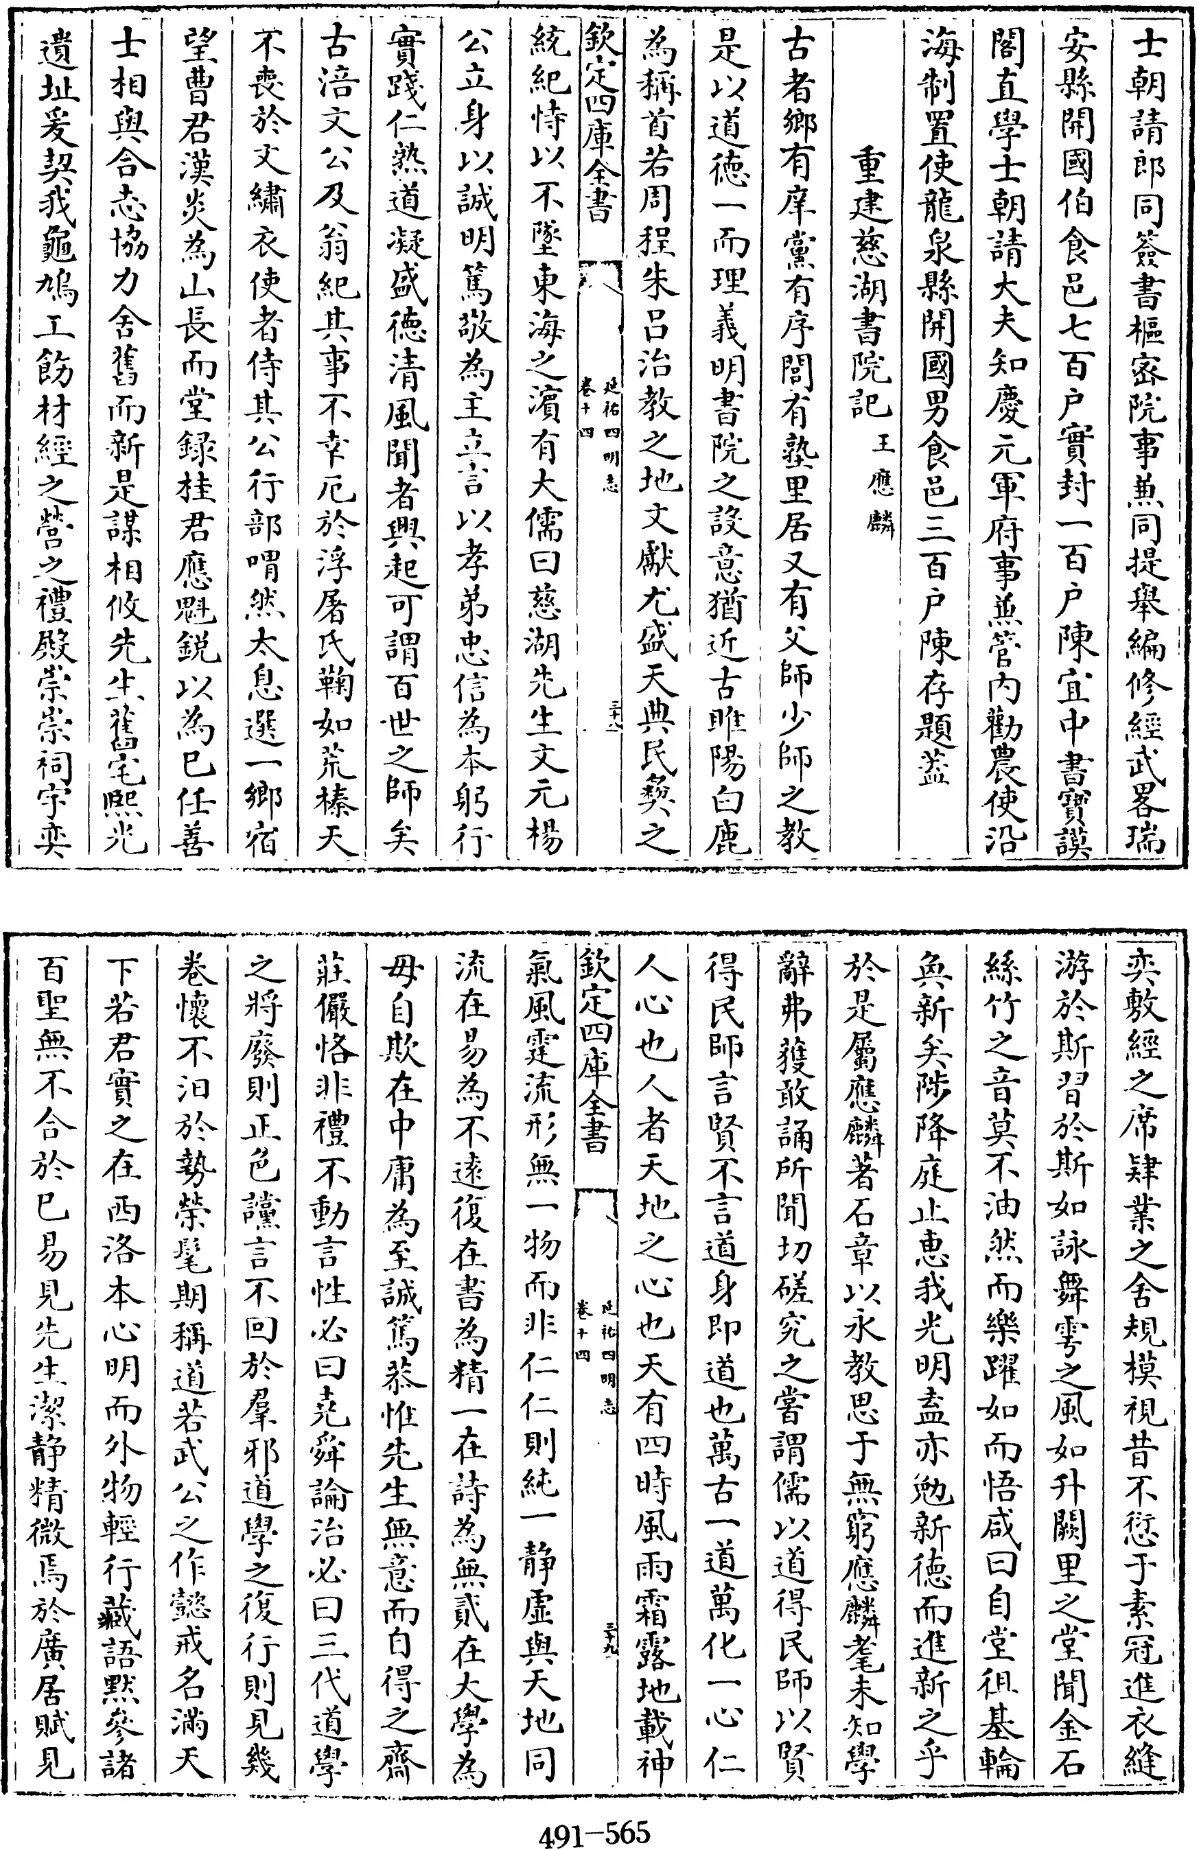 士朝請郎同簽書樞密院事兼同提舉編修經武畧瑞
安縣開國伯食邑七百户實封一百户陳宜中書寳謨
閣直學士朝請大夫知慶元軍府事兼管内勸農使沿
海制置使龍泉縣開國男食邑三百户陳存題葢
重建慈湖書院記 王應麟
古者鄉有庠黨有序閭有塾里居又有父師少師之教
是以道德一而理義明書院之設意猶近古睢陽白鹿
為稱首若周程朱吕治教之地文獻尤盛天典民彝之
欽定四庫全書 卷十四 延祐四明志 三十八
統紀恃以不墜東海之濵有大儒曰慈湖先生文元楊
公立身以誠明篤敬為主立言以孝弟忠信為本躬行
實踐仁熟道凝盛德清風聞者興起可謂百世之師矣
古涪文公及翁紀其事不幸厄於浮屠氏鞠如荒榛天
不喪於文繡衣使者侍其公行部喟然太息選一鄉宿
望曹君漢炎為山長而堂録桂君應魁鋭以為已任善
士相與合志協力舍舊而新是謀相攸先生舊宅熙光
遺址爰契我龜鳩工飭材經之營之禮殿崇崇祠宇奕
奕敷經之席肄業之舍規模視昔不愆于素冠進衣縫
游於斯習於斯如詠舞雩之風如升闕里之堂聞金石
絲竹之音莫不油然而樂躍如而悟咸曰自堂徂基輪
奐新矣陟降庭止惠我光明盍亦勉新德而進新之乎
於是屬應麟著石章以永教思于無窮應麟耄未知學
辭弗獲敢誦所聞切磋究之嘗謂儒以道得民師以賢
得民師言賢不言道身即道也萬古一道萬化一心仁
人心也人者天地之心也天有四時風雨霜露地載神
欽定四庫全書 卷十四 延祐四明志 三十九
氣風霆流形無一物而非仁仁則純一靜虚與天地同
流在易為不逺復在書為精一在詩為無貳在大學為
毋自欺在中庸為至誠篤恭惟先生無意而自得之齋
莊儼恪非禮不動言性必曰堯舜論治必曰三代道學
之將廢則正色讜言不回於羣邪道學之復行則見幾
卷懷不汨於勢榮髦期稱道若武公之作懿戒名滿天
下若君實之在西洛本心明而外物輕行藏語黙參諸
百聖無不合於已易見先生潔靜精微焉於廣居賦見
491-565